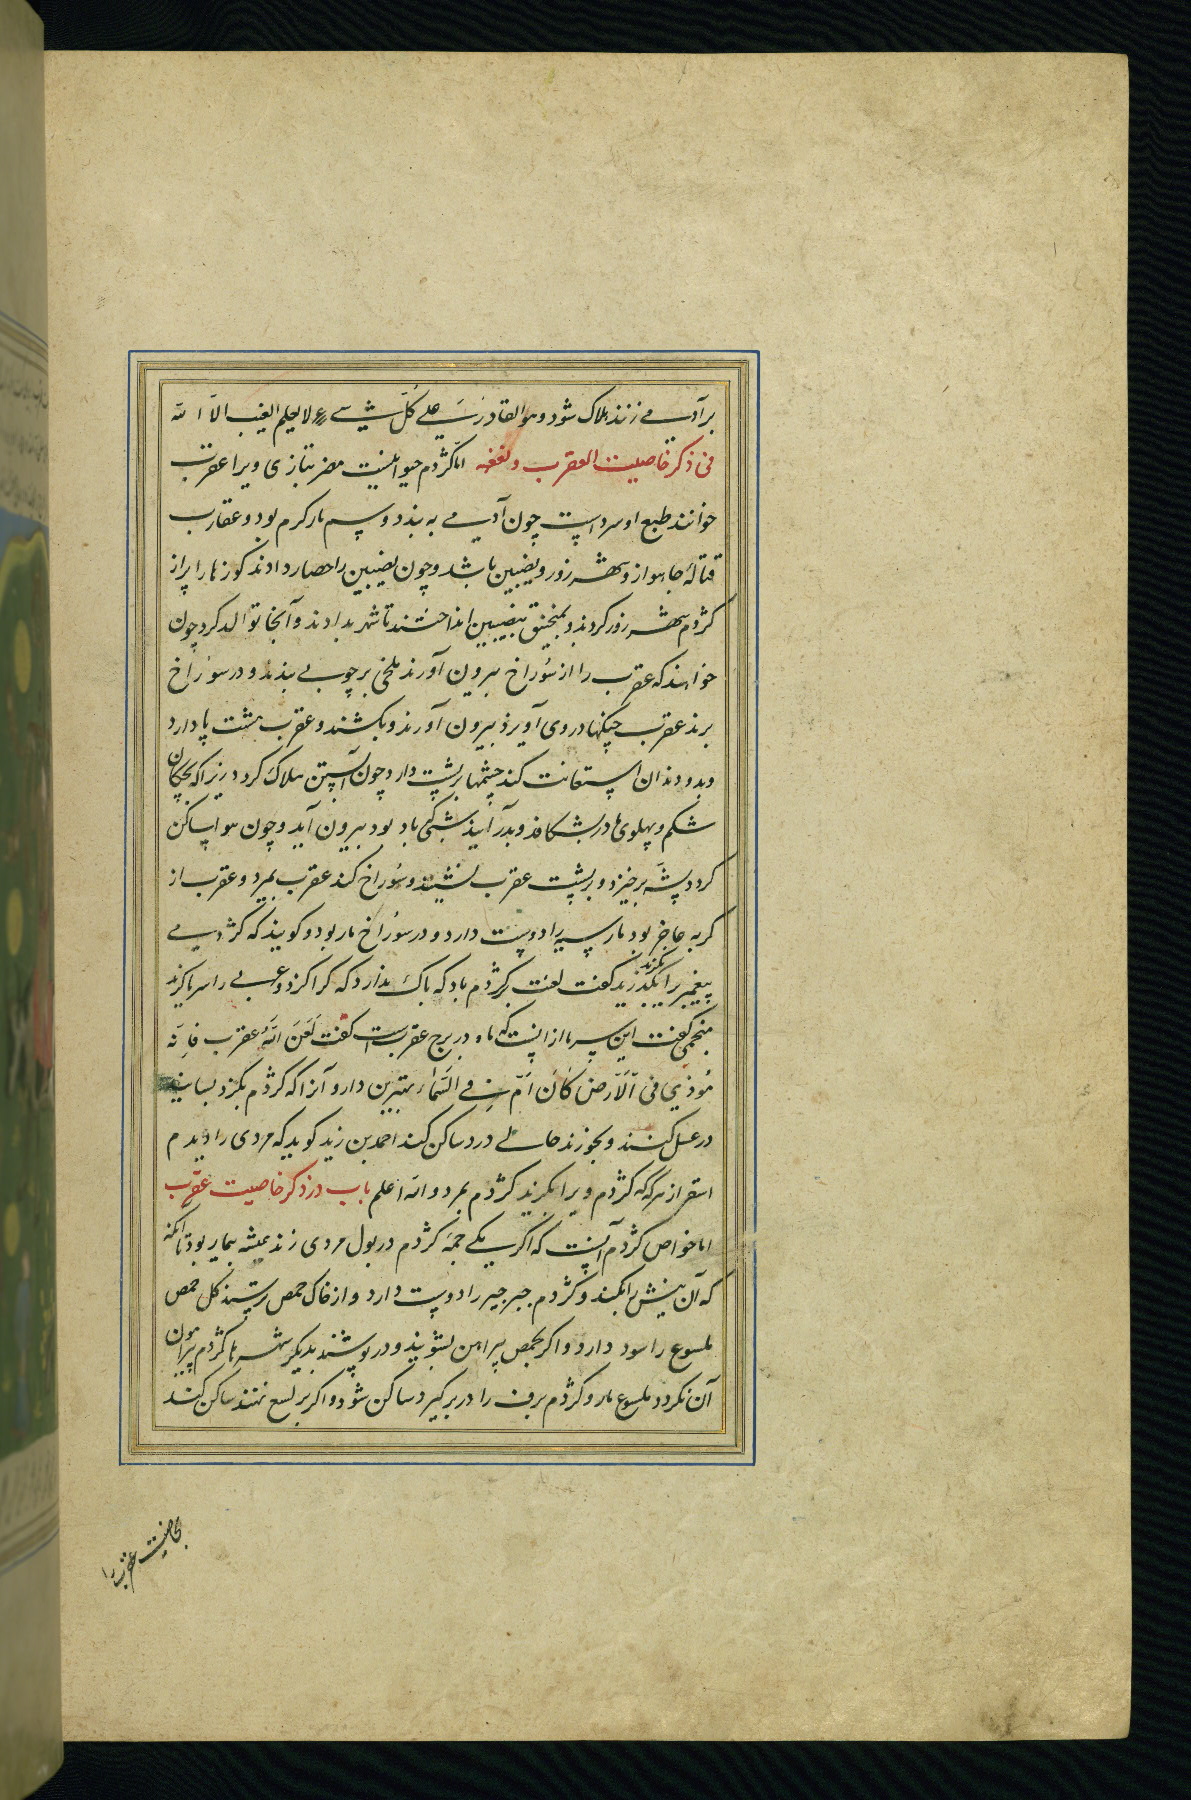 بر آدمی زنند هلاک شود و هو القادر علی کل شیء لا یعلم الغیب الا الله
فی ذکر خاصیت العقرب و نفعه اما کژدم حیوانیست مضر بتازی ویرا عقرب
خوانند طبع او سرد است چون آدمی به بندد و سم مار کرم بود و عقارب
قتاله جا اهواز و شهر زور و نصیبین باشد و چون نصیبین را حصار دادند کوزها را پر از
کژدم شهر زور کردند و بمنجنیق بنصیبین انداختند تا شهر بدادند و آنجا توالد کرد چون
خواهند که عقرب را از سوراخ بیرون آورند ملخی بر چوبی بندند و در سوراخ
برند عقرب چنکها در وی آویزد بیرون آورند و بکشند و عقرب هشت پا دارد
و بدو دندان استعانت کند چشمها بر پشت دارد چون آبستن هلاک کردد زیرا که بچکان
شکم و پهلوی ها در بشکافند و بدر آیند بشبی که باد بود بیرون آید و چون هوا ساکن
کردد پشه برخیزد و بر پشت عقرب نشیند و سوراخ کند عقرب بمیرد و عقرب از
کربه عاجز بود مار سیه را دوست دارد و در سوراخ مار بود و کویند که کژدمی
پیغمبر را بگزید کفت لعنت بر کژدم باد که باک ندارد که کرا کزد و عربی را سرما کزید
منجمی کفت این سرما از انست که ماه در برج عقرب است کفت لعن الله عقرب فانه
موذی فی الارض کان ام فی السماء بهترین دارو آنرا که کژدم بکزد بسایند
در عسل کنند و بخورند حالی درد ساکن کند احمد بن زید کوید که مردی را دیدم
اسقر از هر که کژدم ویرا بکزید کژدم بمرد و الله اعلم باب در ذکر خاصیت عقرب
اما خواص کژدم آنست که اکر یکی حمه کژدم در بول مردی زند همیشه بیمار بود تا انکه
که آن نیش را بکند و کژدم جیرجیر را دوست دارد و از خاک حمص رستند کل حمص
ملسوع را سود دارد و اکر بحمص پیراهن بشویند و در پوشند بدیکر شهرها کژدم پیرامون
آن نکردد ملسوع مار و کژدم برف را در بر کیرد ساکن شود و اکر بر لسع نهند ساکن کند
بخاصیت عقرب را